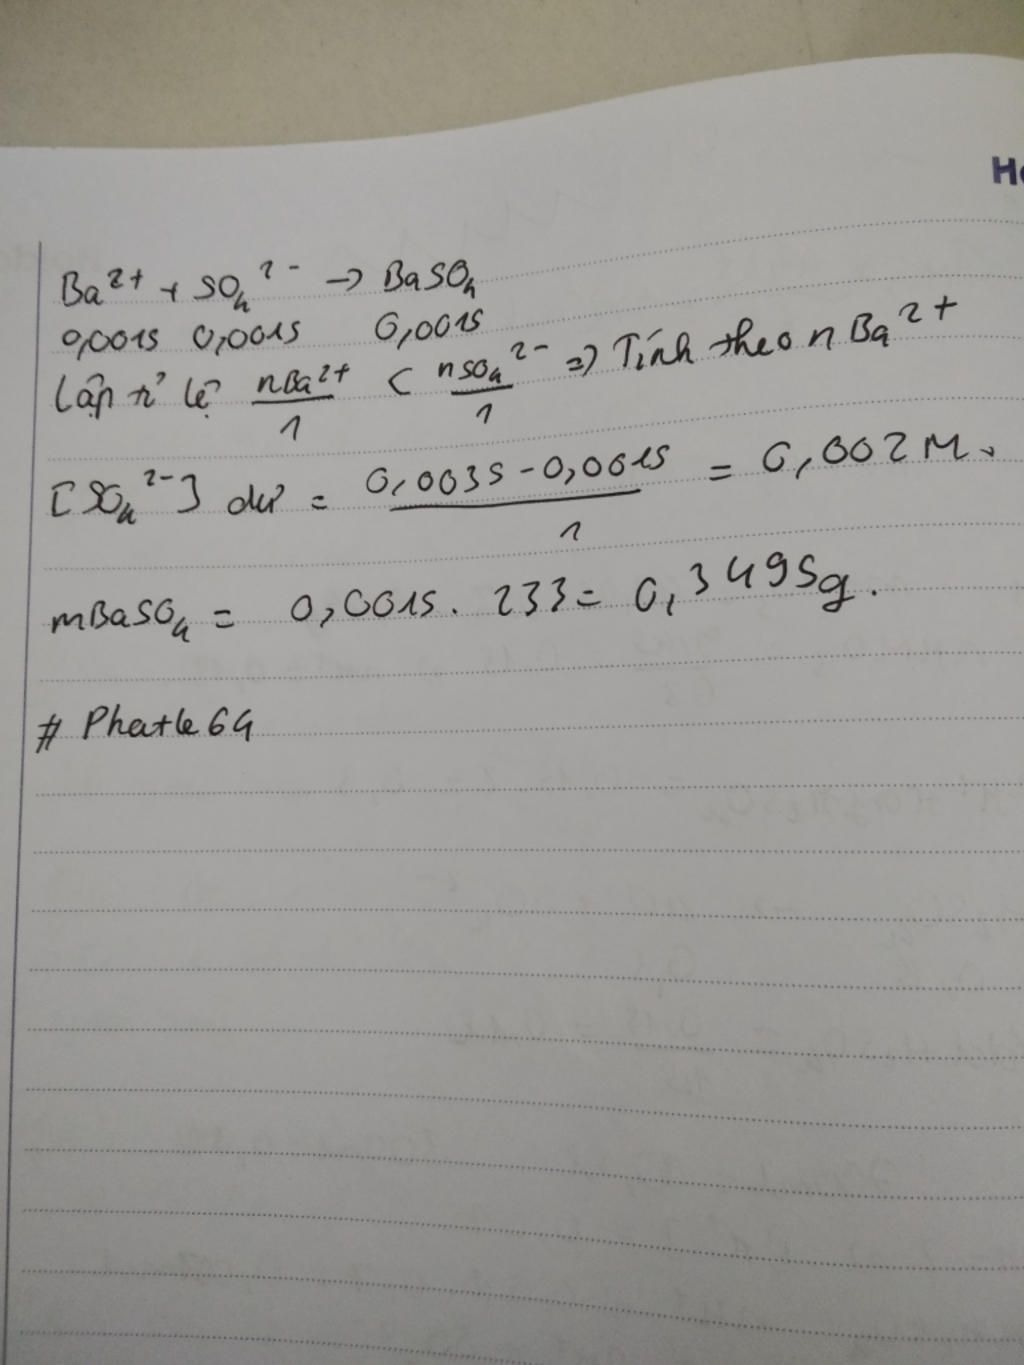 Ho
Ba²⁺ + SO₄²⁻ → BaSO₄
0,0015 0,0015 0,0015
Lập tỉ lệ nBa²⁺/1 < nSO₄²⁻/1 => Tính theo nBa²⁺
[SO₄²⁻] dư = (0,0035 - 0,0015)/1 = 0,002M.
mBaSO₄ = 0,0015 . 233 = 0,3495g.
# Phatle64